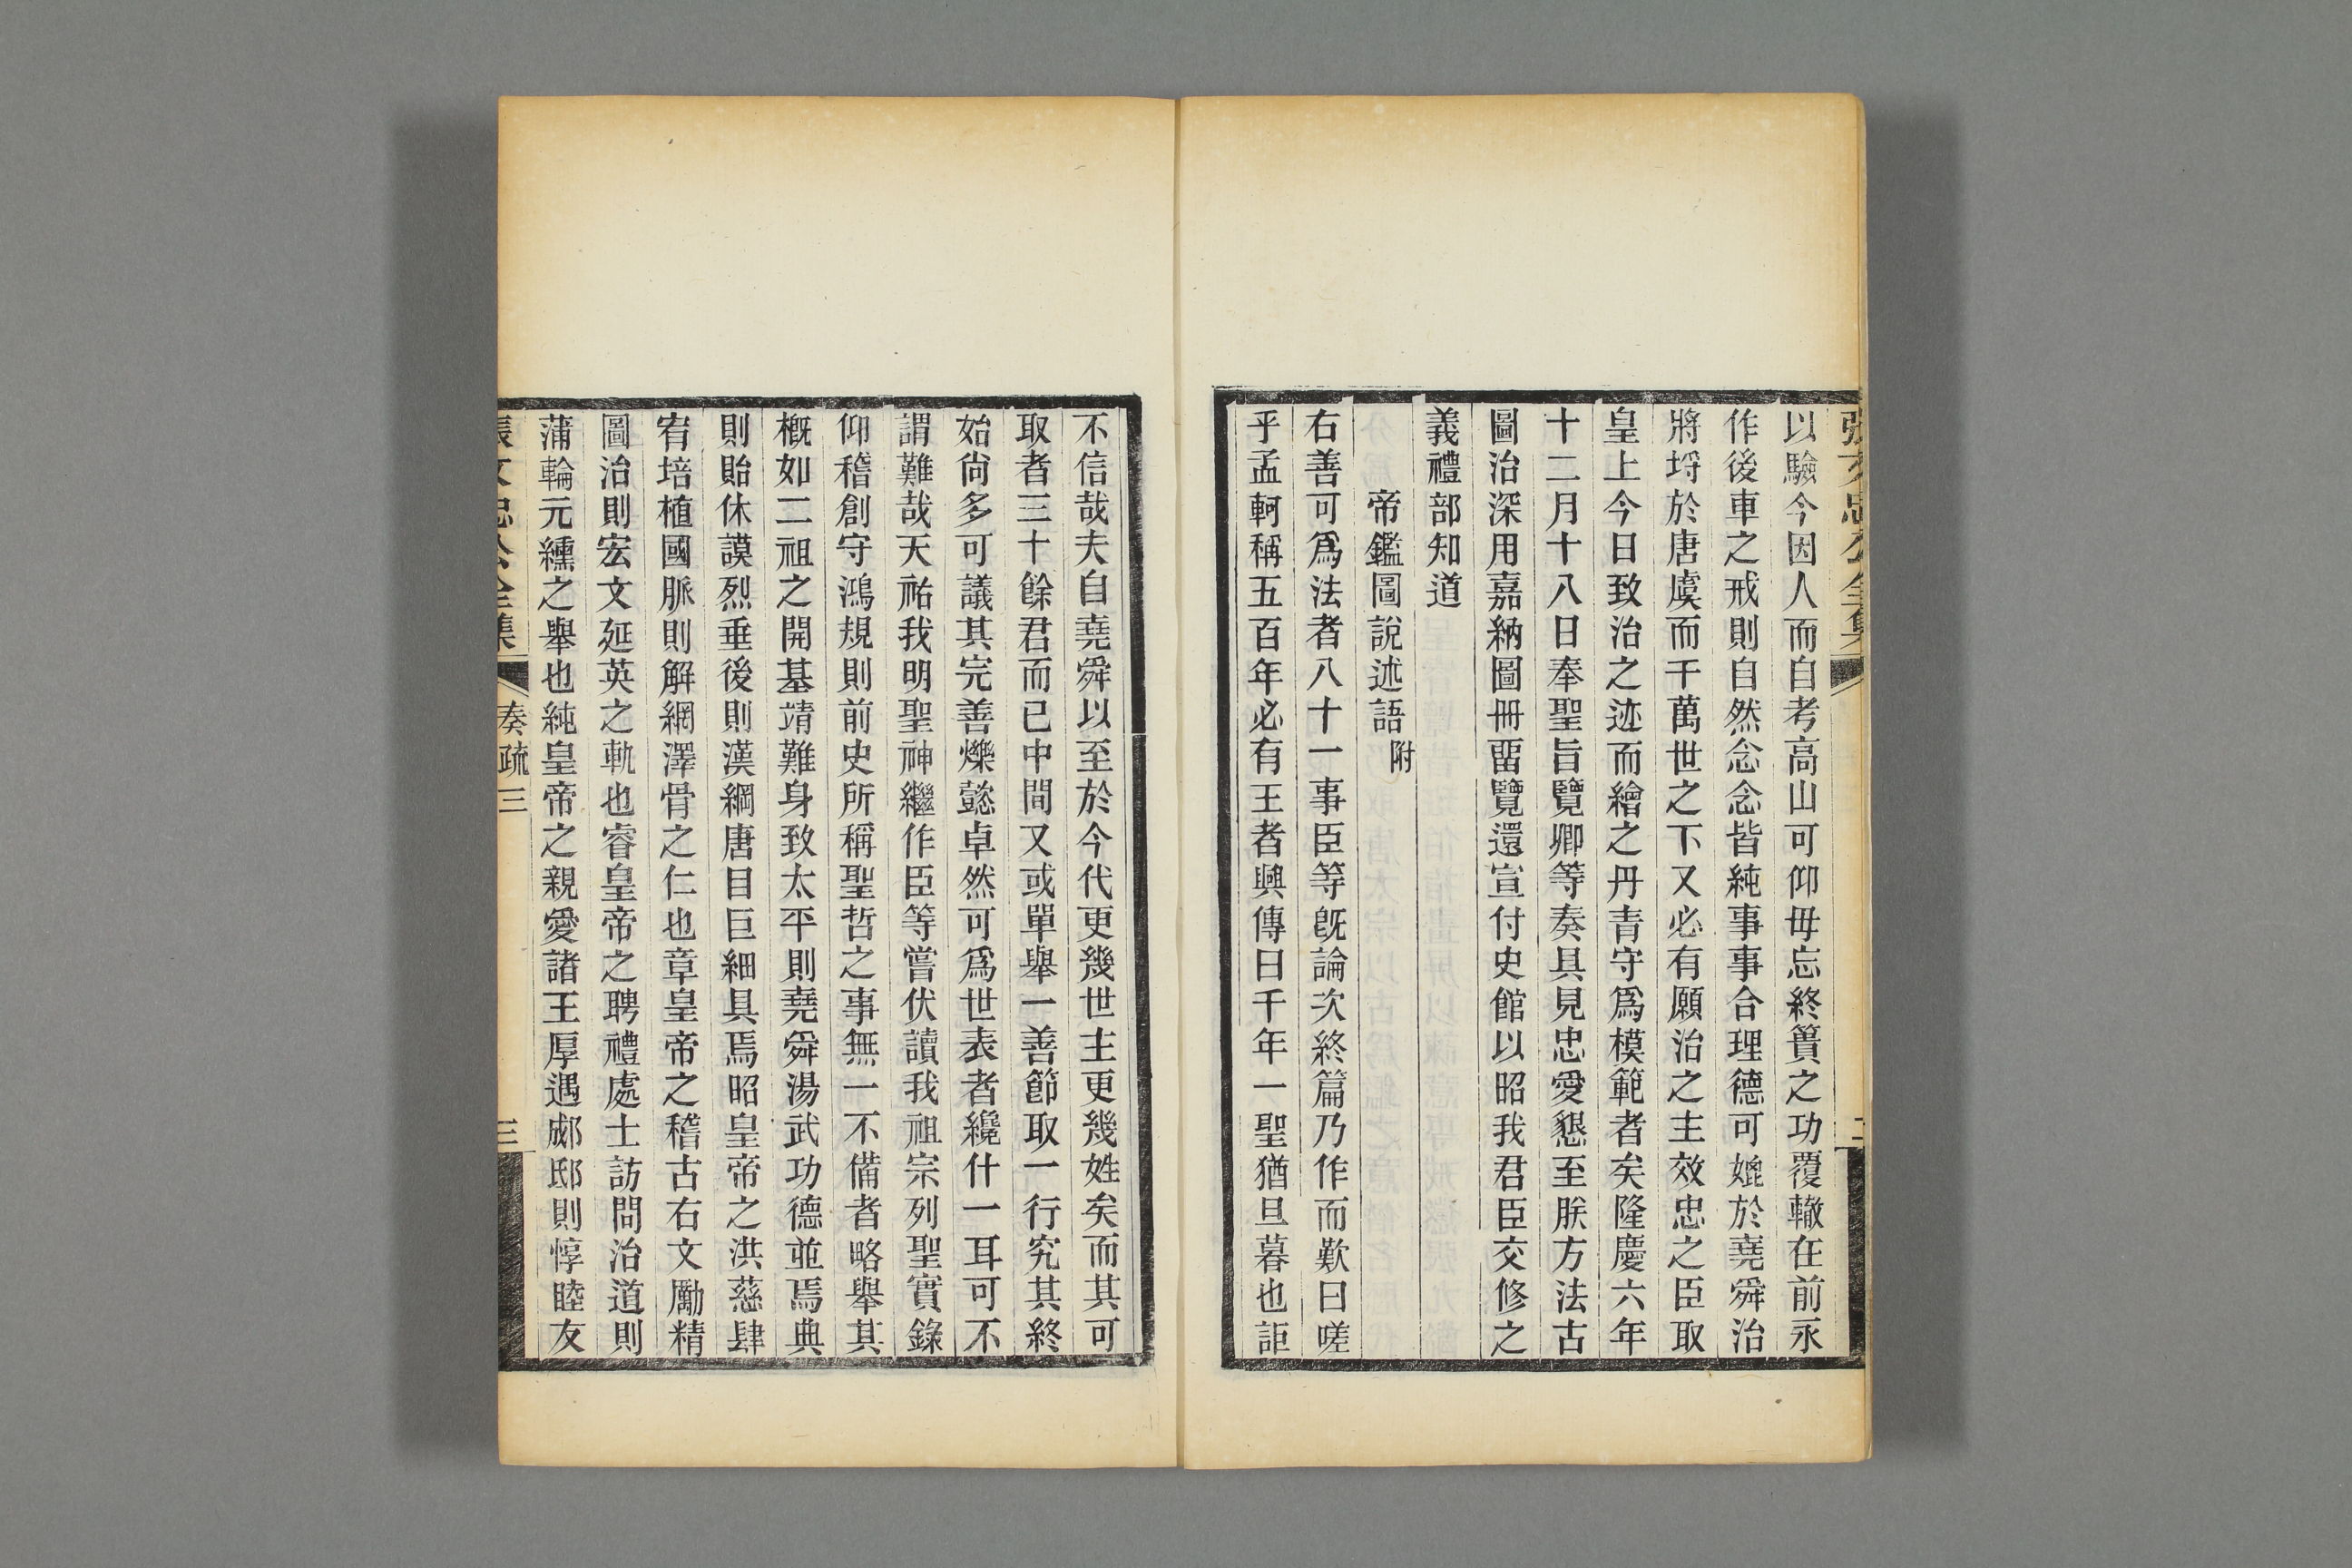 張文忠公全集
二
以驗今因人而自考高山可仰毋忘終簣之功覆轍在前永
作後車之戒則自然念念皆純事事合理德可媲於堯舜治
將埒於唐虞而千萬世之下又必有願治之主效忠之臣取
皇上今日致治之迹而繪之丹青守爲模範者矣隆慶六年
十二月十八日奉聖旨覽卿等奏具見忠愛懇至朕方法古
圖治深用嘉納圖冊畱覽還宣付史館以昭我君臣交修之
義禮部知道
帝鑑圖說述語附
右善可爲法者八十一事臣等旣論次終篇乃作而歎曰嗟
乎孟軻稱五百年必有王者興傳曰千年一聖猶旦暮也詎
不信哉夫自堯舜以至於今代更幾世主更幾姓矣而其可
取者三十餘君而已中間又或單舉一善節取一行究其終
始尙多可議其完善爍懿卓然可爲世表者纔什一耳可不
謂難哉天祐我明聖神繼作臣等嘗伏讀我祖宗列聖實錄
仰稽創守鴻規則前史所稱聖哲之事無一不備者略舉其
槪如二祖之開基靖難身致太平則堯舜湯武功德並焉典
則貽休謨烈垂後則漢綱唐目巨細具焉昭皇帝之洪慈肆
宥培植國脈則解網澤骨之仁也章皇帝之稽古右文勵精
圖治則宏文延英之軌也睿皇帝之聘禮處士訪問治道則
蒲輪元纁之舉也純皇帝之親愛諸王厚遇郕邸則惇睦友
張文忠公全集
奏疏三
三